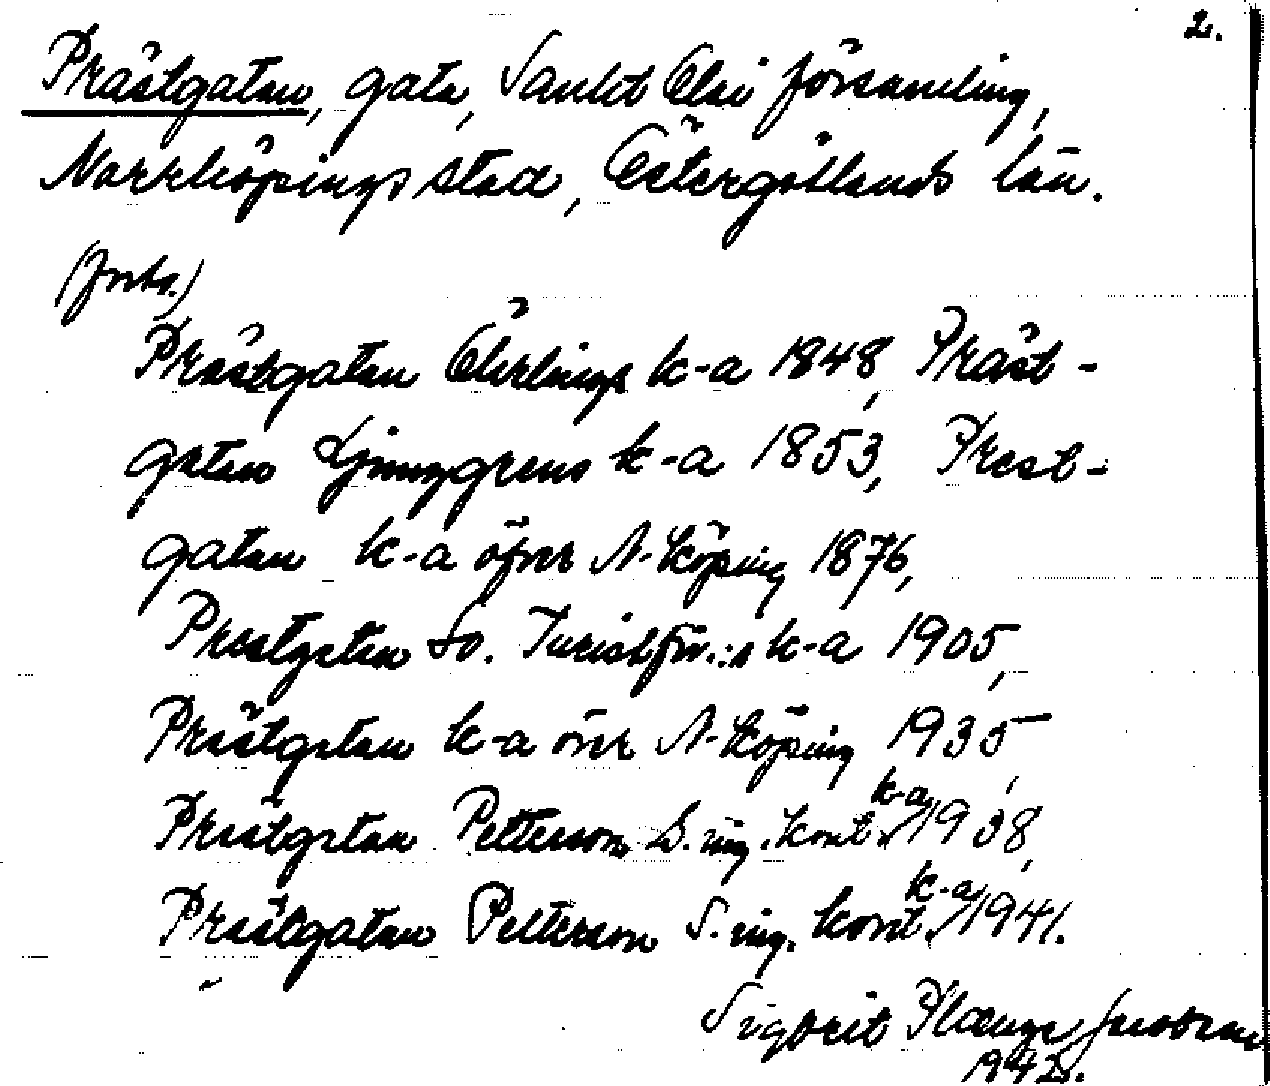 2.
Prästgatan, gata, Sankt Olai församling,
Norrköpings stad, Östergötlands län.
(forts.)
Prästgatan Öhrlings k-a 1848, Präst-
gatan Ljunggrens k-a 1853, Prest-
gatan k-a öfver N-köping 1876,
Prestgatan Sv. Turistför.:s k-a 1905,
Prästgatan k-a över N-köping 1935,
Prästgatan Petterson S. ing. kont. k-a 1938,
Prästgatan Petterson S. ing. kont. k-a 1941.
Sigbrit Plænge Jacobson
1942.